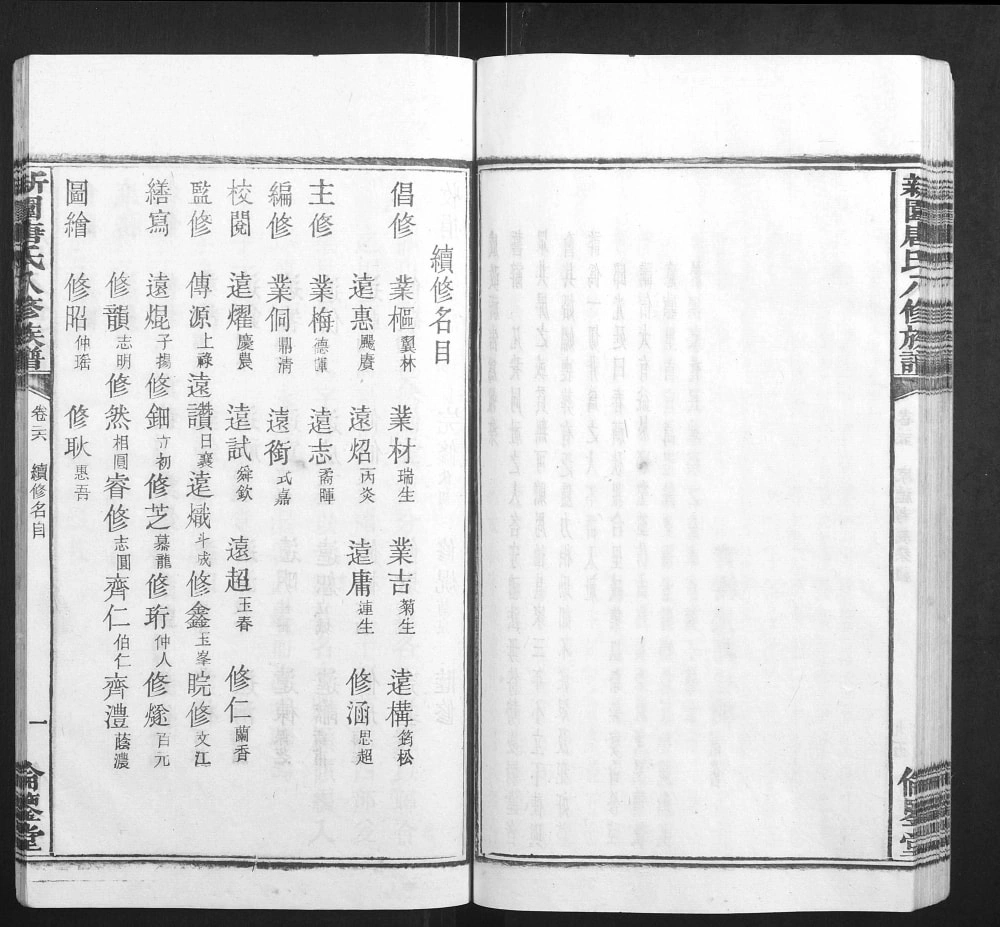 續修名目
倡修 業樞翼林 業材瑞生 業吉菊生 遠構筠松
遠惠颺賡 遠炤丙炎 遠庸連生 修涵思超
主修 業梅德馡 遠志矞暉
編修 業侗鼎清 遠銜式嘉
校閱 遠燿慶農 遠試舜欽 遠超玉春 修仁蘭香
監修 傳源上祿 遠讃日襄 遠熾斗成 修鑫玉峯 睆修文江
繕寫 遠焜子揚 修鈿立初 修芝慕龍 修珩仲人 修燧百元
修韻志明 修然相圓 睿修志圓 齊仁伯仁 齊澧蔭濃
圖繪 修昭仲瑤 修耿惠吾
新園唐氏八修族譜 卷六 續修名目 一 倫鑒堂
新園唐氏八修族譜 倫鑒堂